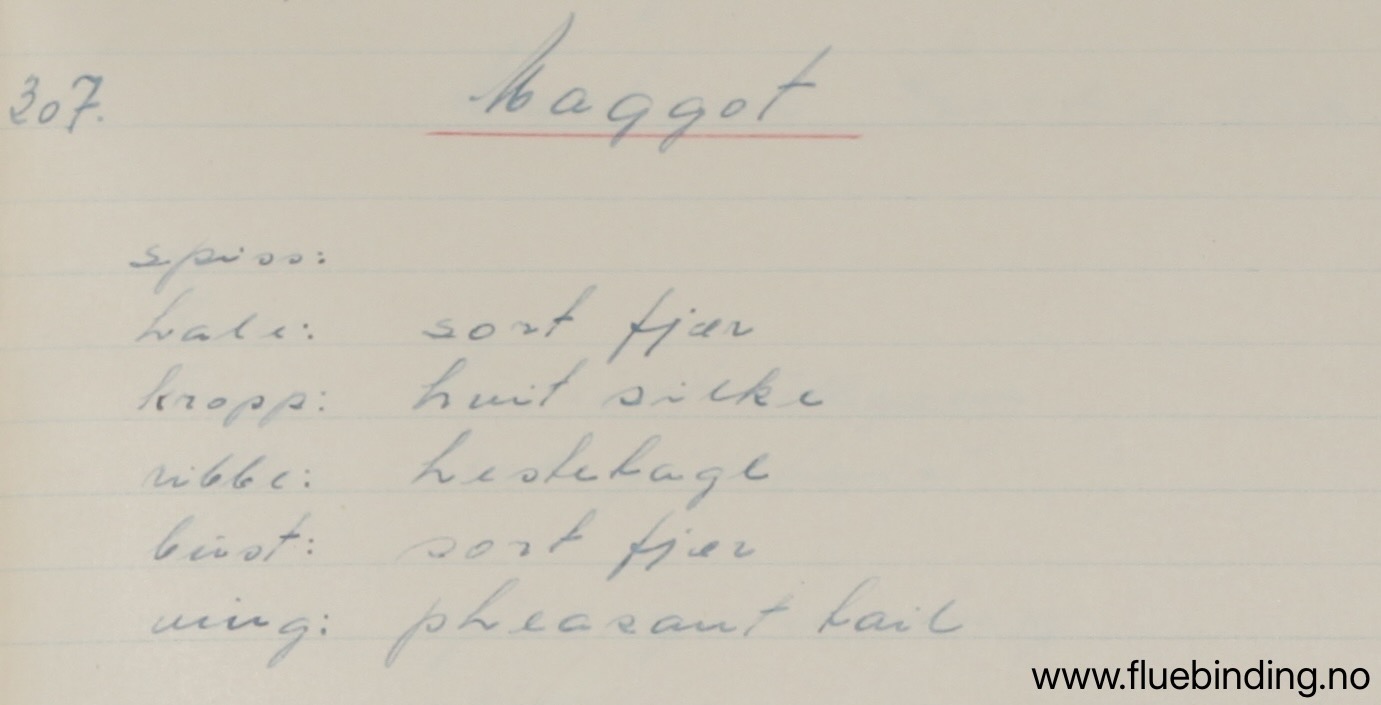 307.
Maggot
spiss:
hale: sort fjær
kropp: hvit silke
ribbe: hestetagl
bust: sort fjær
ving: pheasant tail
www.fluebinding.no